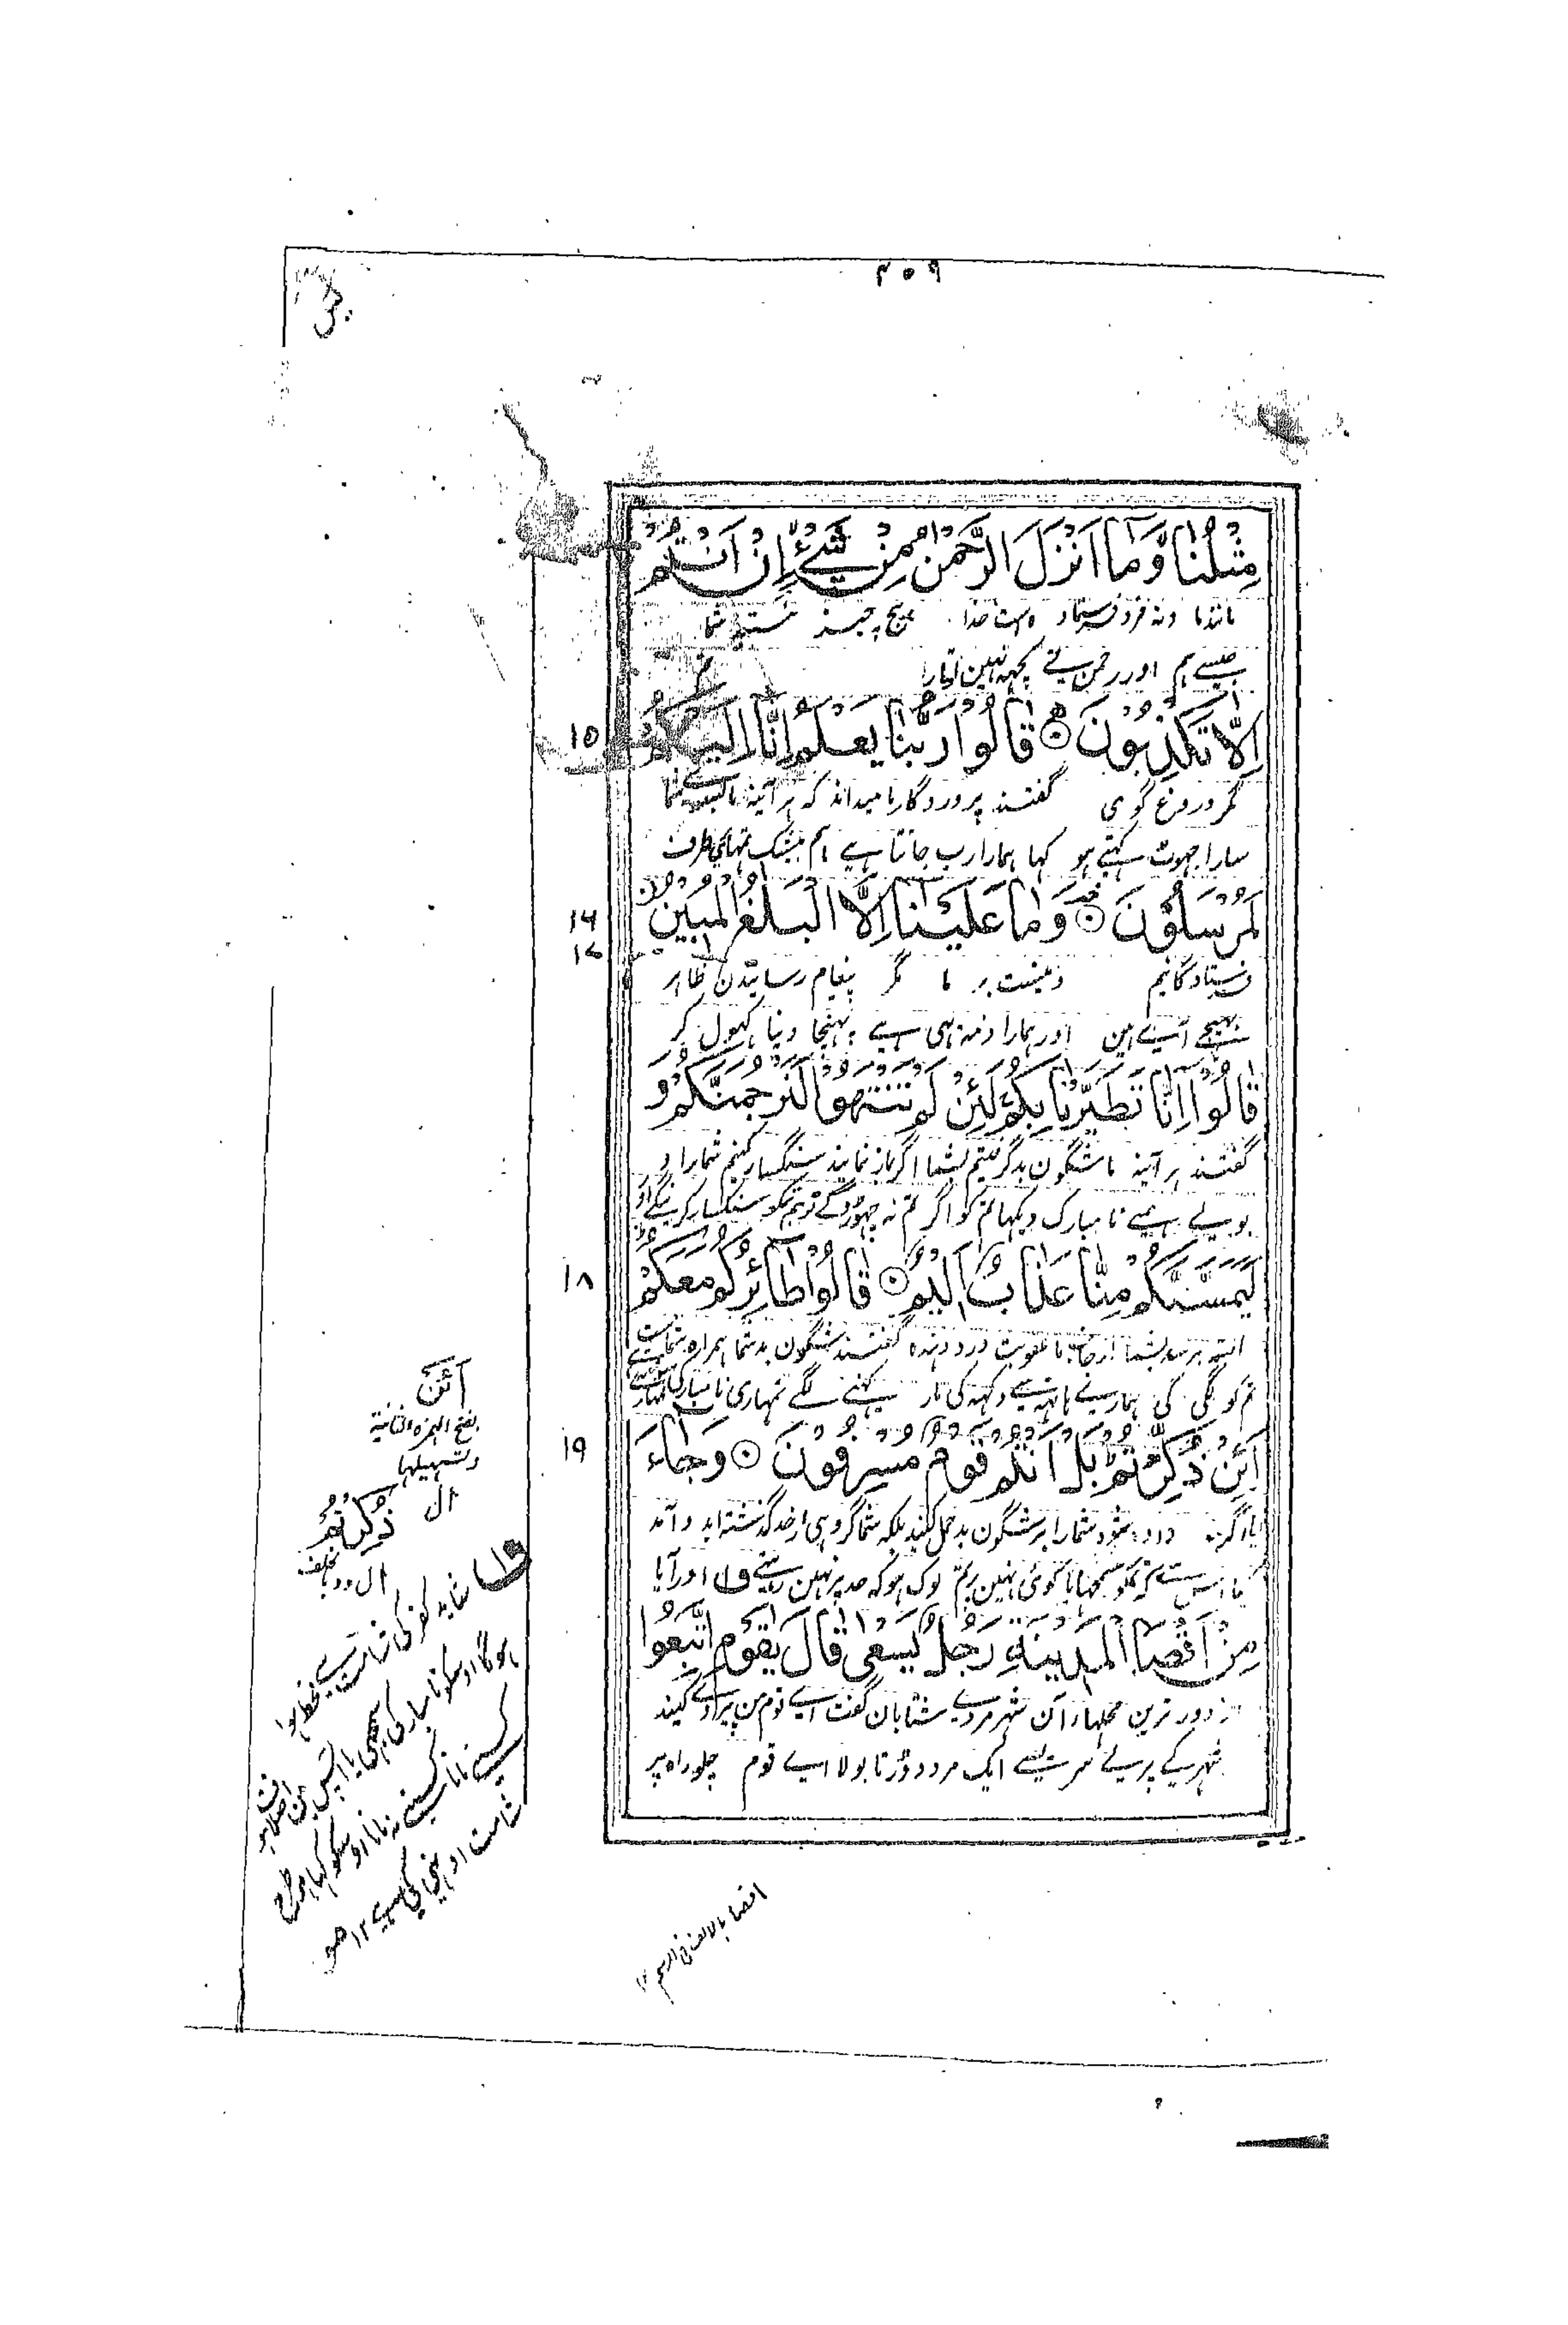 ۴۵۹
يٰسٓ
مِثْلُنَا وَمَا اَنْزَلَ الرَّحْمٰنُ مِنْ شَيْءٍ اِنْ اَنْتُمْ
مانند ما ونه فرو فرستاد خدا هیچ چیز نیستید شما
جیسے ہم اور رحمن نے کچھہ نہین اتارا تم
اِلَّا تَكْذِبُوْنَ ۝ قَالُوْا رَبُّنَا يَعْلَمُ اِنَّا اِلَيْكُمْ
۱۵
مگر دروغ گوی گفتند پروردگار ما میداند که هر آئینه ما بسوے شما
سارا جھوٹ کہتے ہو کہا ہمارا رب جانتا ہے ہم بیشک تمہاری طرف
لَمُرْسَلُوْنَ ۝ وَمَا عَلَيْنَا اِلَّا الْبَلٰغُ الْمُبِيْنُ
۱۶
۱۷
فرستادگانیم ونیست بر ما مگر پیغام رسانیدن ظاہر
بھیجے آئے ہین اور ہمارا ذمہ یہی ہے پہنچا دینا کھول کر
قَالُوْا اِنَّا تَطَيَّرْنَا بِكُمْ لَئِنْ لَمْ تَنْتَهُوْا لَنَرْجُمَنَّكُمْ وَ
گفتند ہر آئینه ما شگون بد گرفتیم بشما اگر باز نمانید سنگسار کنیم شمارا و
بولے ہمنے نامبارک دیکھا تم کو اگر تم نہ چھوڑوگے تو ہم تمکو سنگسار کرینگے اور
لَيَمَسَّنَّكُمْ مِنَّا عَذَابٌ اَلِيْمٌ ۝ قَالُوْا طَآئِرُكُمْ مَعَكُمْ
۱۸
البته برسد بشما از جانب ما عقوبت درد دهنده گفتند شگون بد شما همراه شماست
تم کو لگی گی ہمارے ہاتھہ سے دکھہ کی مار کہنے لگے تمہاری نامبارکی تمہارے
اَئِنْ ذُكِّرْتُمْ بَلْ اَنْتُمْ قَوْمٌ مُسْرِفُوْنَ ۝ وَجَآءَ
۱۹
آیا اگر داده شود شمارا بر شگون بد حمل کنید بلکه شما گروہی از حد گذشته اید و آمد
کیا اس سے کہ تمکو سمجھایا کوئی نہین پر تم لوگ ہو کہ حد پر نہین رہتے ف۱ اور آیا
مِنْ اَقْصَا الْمَدِيْنَةِ رَجُلٌ يَسْعٰى قَالَ يٰقَوْمِ اتَّبِعُوا
از دور ترین محلهاء آن شهر مردے شتابان گفت اے قوم من پیروی کنید
شہر کے پرلے سرے سے ایک مرد دوڑتا بولا اے قوم چلو راہ پر
اَئِنْ
بفتح الهمزة الثانیة
وتسهیلها
ال
ذُكِرْتُمْ
ال
ف۱ شاید کفر کی شامت سے قحط ہوا
ہوگا اوسکو نامبارکی سمجھی یا آپس مین اختلاف ہوا
کسینے مانا کسینے نہ مانا اوسکو کہا ہر طرح
شامت اونہی کی ہے ۱۲ مو
اقصا بالالف فی الرسم ۱۲